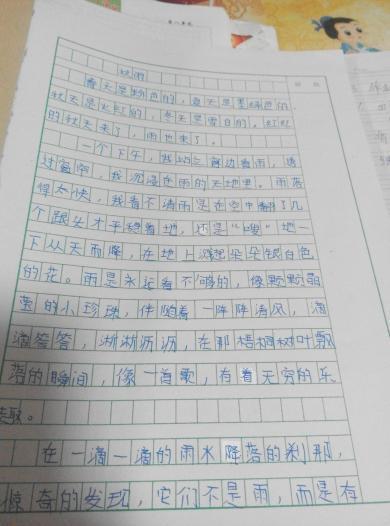 秋雨
春天是粉色的，夏天是墨绿色的，
秋天是火红的，冬天是雪白的。红红
的秋天来了，雨也来了。
一个下午，我站在窗边看雨，透
过窗帘，我沉浸在雨的天地里。雨落
得太快，我看不清雨是在空中翻了几
个跟头才平稳着地，还是“嗖”地一
下从天而降，在地上溅起朵朵银白色
的花。雨是永远看不够的，像颗颗晶
莹的小珍珠，伴随着一阵阵清风，滴
滴答答，淅淅沥沥，在那梧桐树叶飘
落的瞬间，像一首歌，有着无穷的乐
趣。
在一滴一滴的雨水降落的刹那，
惊奇的发现，它们不是雨，而是有